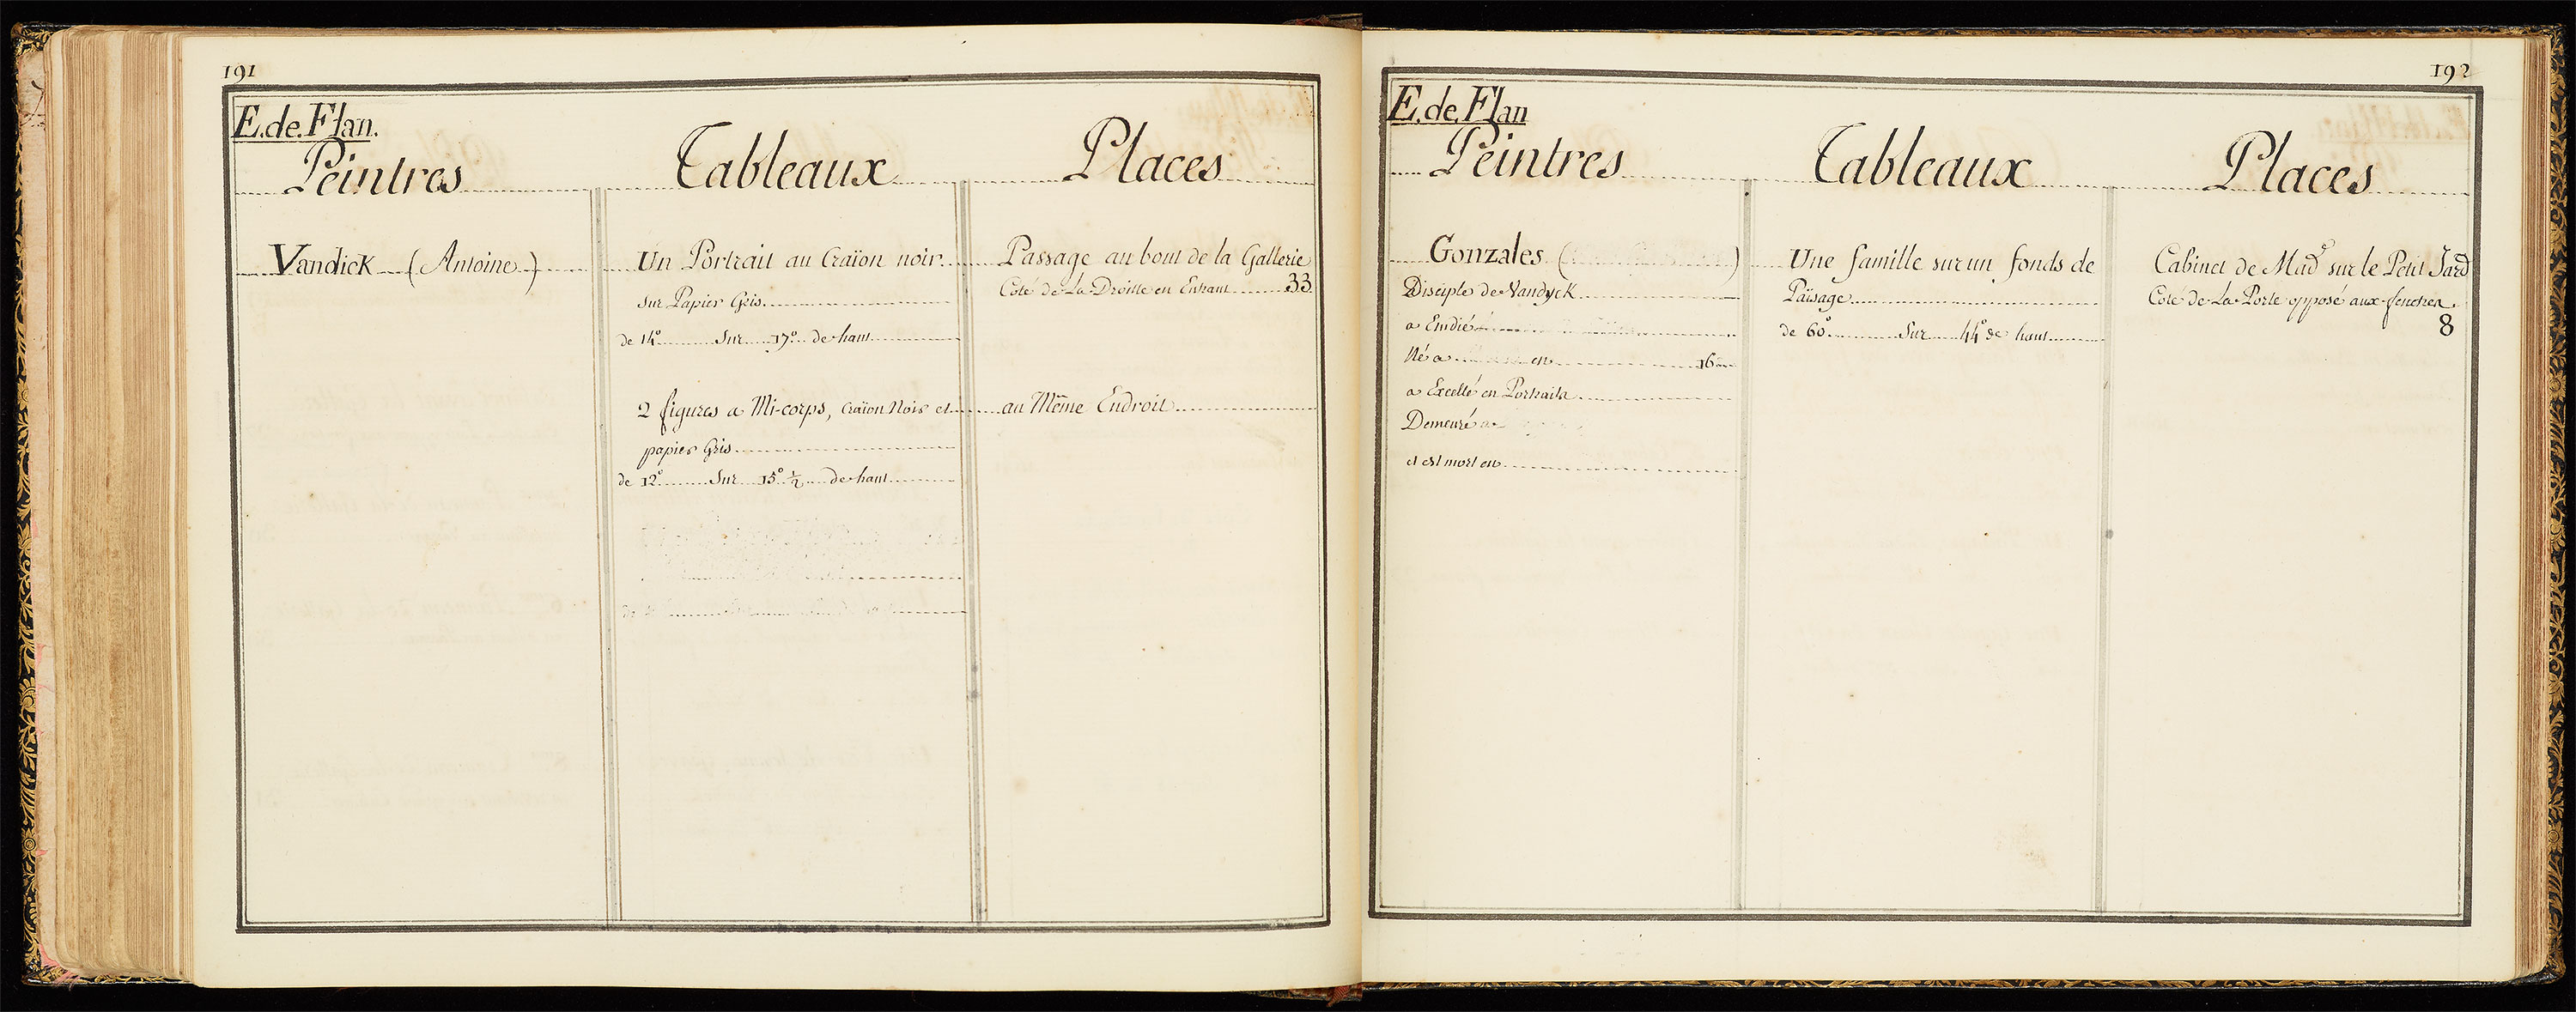 191
E. de. Flan.
Peintres Tableaux Places
Vandick (Antoine) Un Portrait au Craïon noir Passage au bout de la Gallerie
sur Papier Gris Coté de La Droitte en Entrant 33
de 14° Sur 17° de haut
2 figures a Mi-corps, Craïon Noir et au Même Endroit
papier Gris
de 12° Sur 15° ½ de haut
192
E. de. Flan
Peintres Tableaux Places
Gonzales ( ) Une famille sur un fonds de Cabinet de Mad^e sur le Petit Jard
Disciple de Vandyck Païsage Coté de La Porte opposé aux fenetres.
a Etudié de 60° Sur 44° de haut 8
Né a en 16
a Excellé en Portraits
Demeuré a
et est mort en